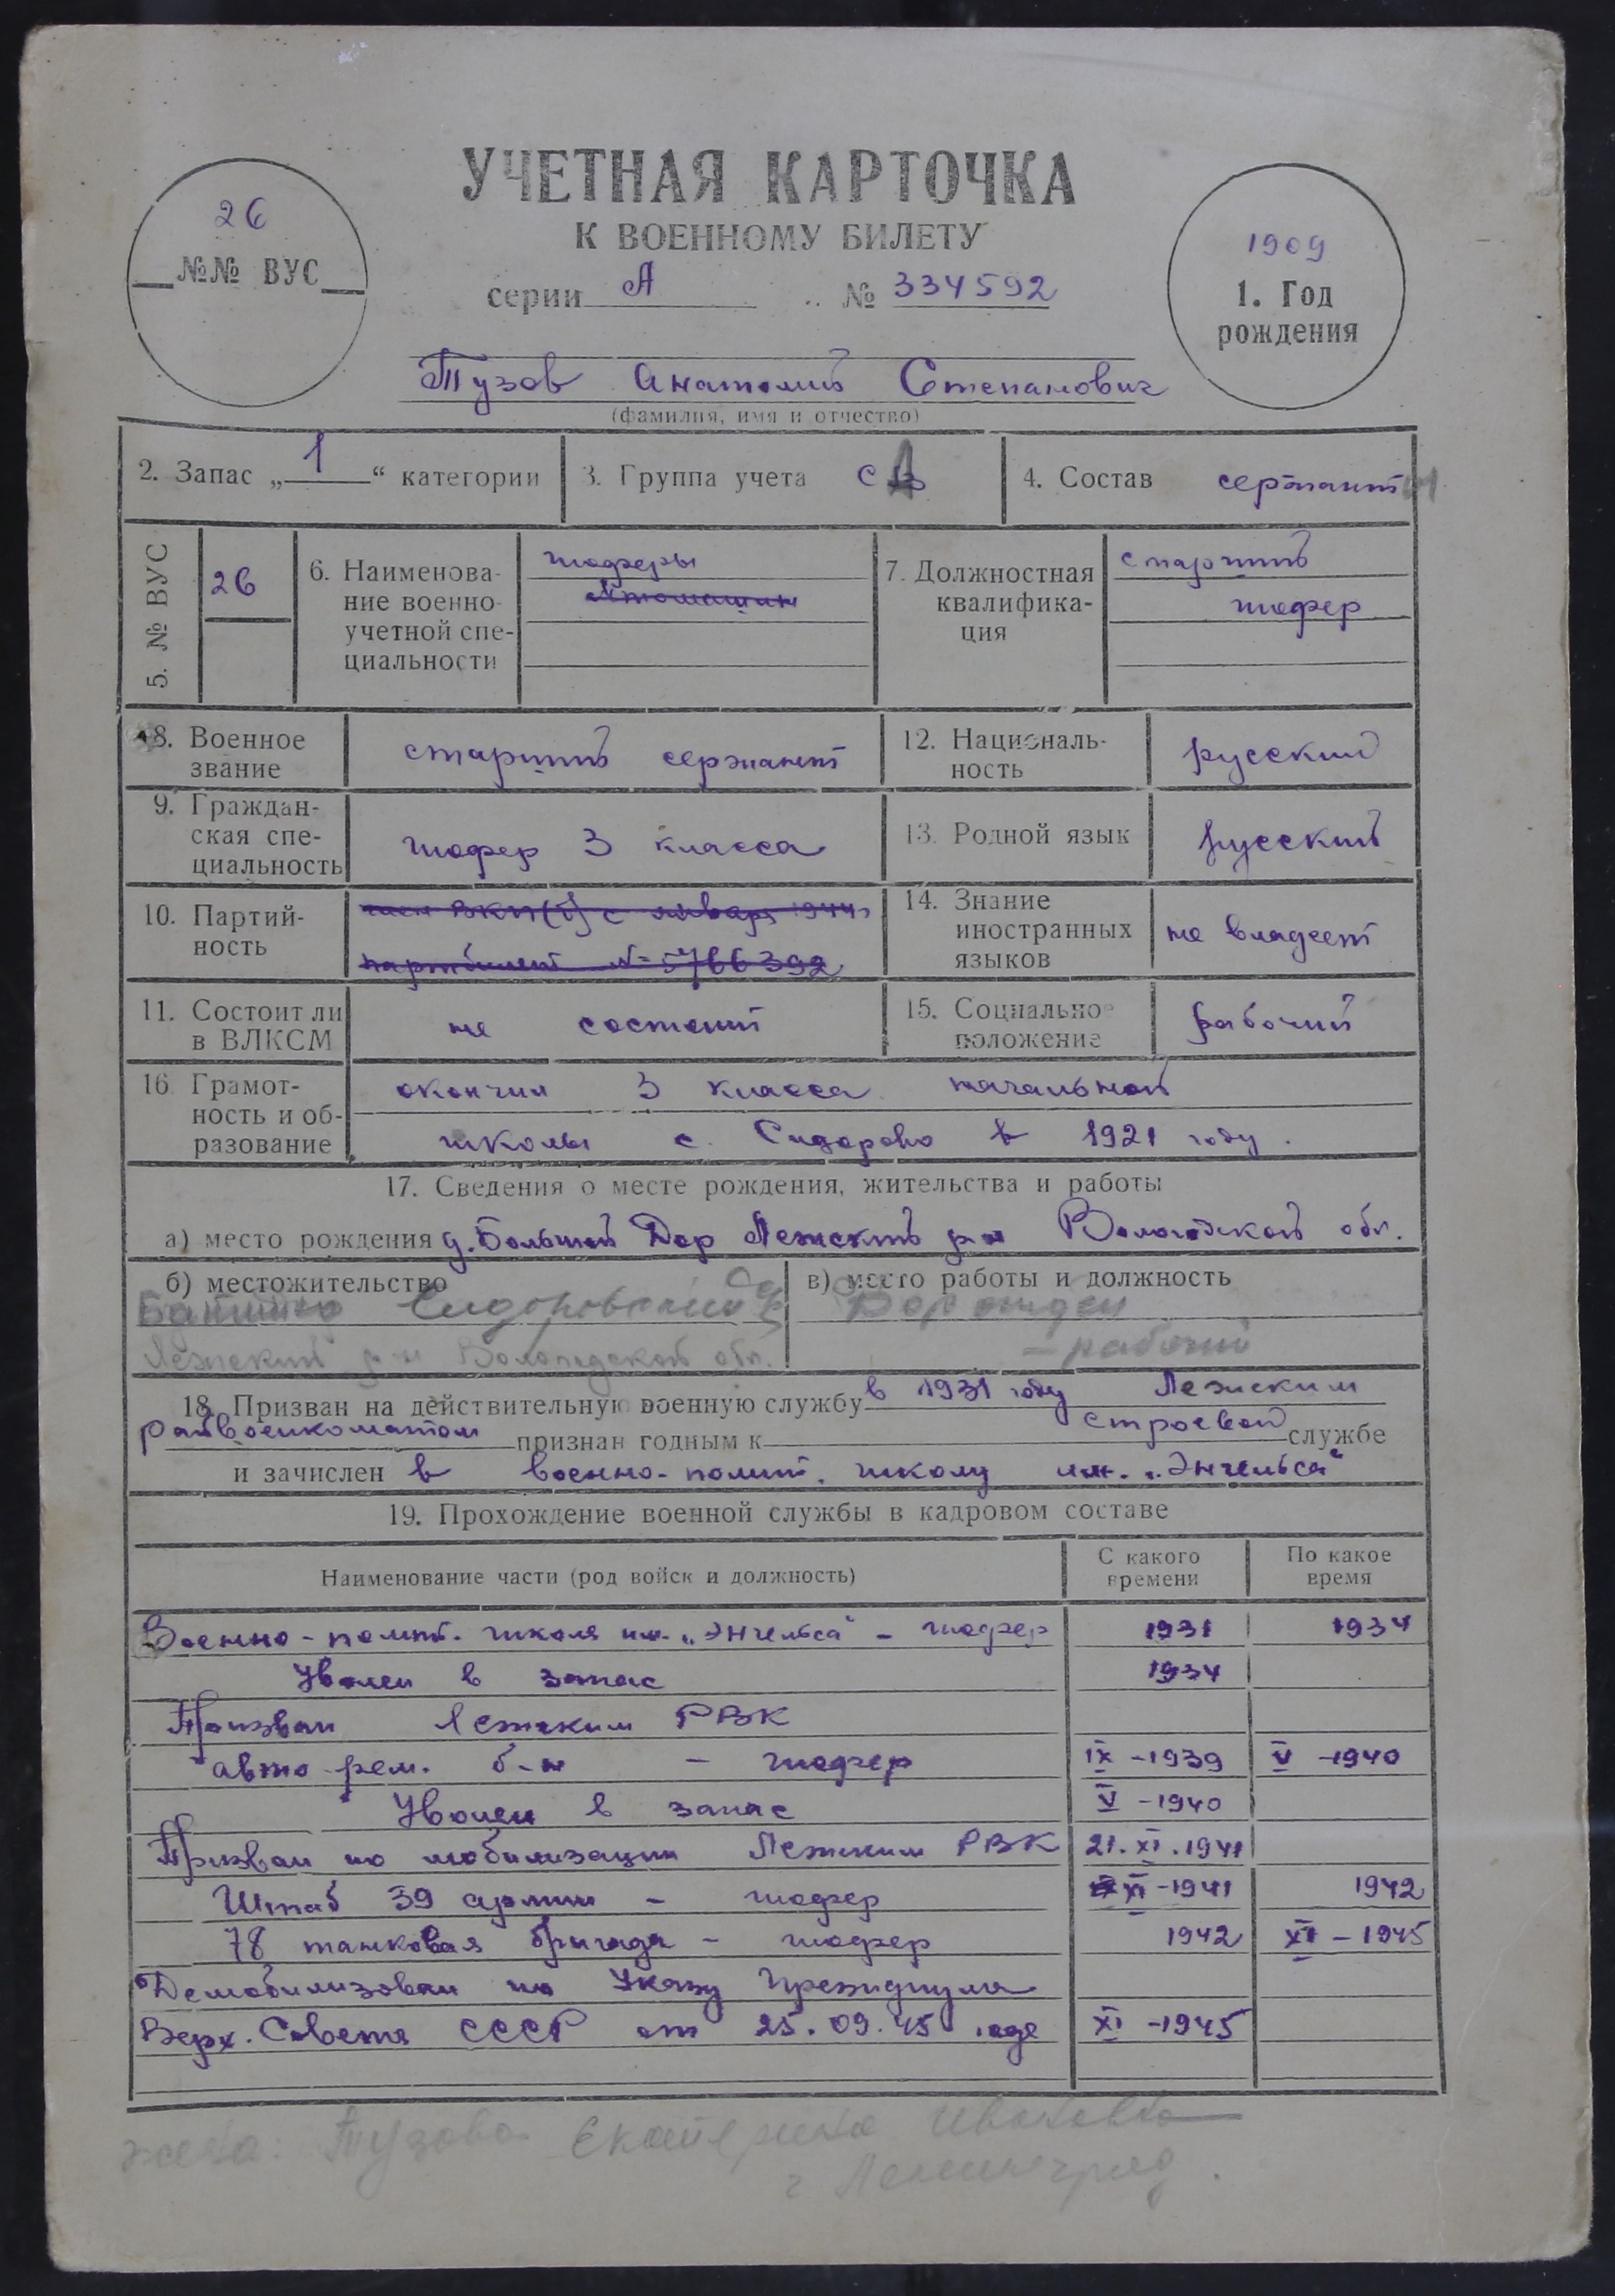 УЧЕТНАЯ КАРТОЧКА
К ВОЕННОМУ БИЛЕТУ
26
№№ ВУС
серии А № 334592
1909
1. Год
рождения
Тузов Анатолий Степанович
(фамилия, имя и отчество)
2. Запас „1“ категории
3. Группа учета СА
4. Состав сержант
5. № ВУС
26
6. Наименова-
ние военно-
учетной спе-
циальности
шоферы
автомашин
7. Должностная
квалифика-
ция
старший
шофер
8. Военное
звание
старший сержант
12. Националь-
ность
русский
9. Граждан-
ская спе-
циальность
шофер 3 класса
13. Родной язык
русский
10. Партий-
ность
член ВКП(б) с января 1944 г
партбилет № 5766392
14. Знание
иностранных
языков
не владеет
11. Состоит ли
в ВЛКСМ
не состоит
15. Социальное
положение
рабочий
16. Грамот-
ность и об-
разование
окончил 3 класса начальной
школы с. Сидорово в 1921 году.
17. Сведения о месте рождения, жительства и работы
а) место рождения д. Большой Двор Лежский р-н Вологодской обл.
б) местожительство
Сидоровский
Лежский р-н Вологодской обл.
в) место работы и должность
- рабочий
18. Призван на действительную военную службу в 1931 году Лежским
райвоенкоматом признан годным к строевой службе
и зачислен в военно-полит. школу им. „Энгельса“
19. Прохождение военной службы в кадровом составе
Наименование части (род войск и должность)
С какого
времени
По какое
время
Военно-полит. школа им. „Энгельса“ - шофер 1931 1934
Уволен в запас 1934
Призван Лежским РВК
авто-рем. б-н - шофер IX -1939 V -1940
Уволен в запас V -1940
Призван по мобилизации Лежским РВК 21.XI.1941
Штаб 39 армии - шофер XI -1941 1942
78 танковая бригада - шофер 1942 XI - 1945
Демобилизован по Указу Президиума
Верх. Совета СССР от 25.09.45 года XI -1945
жена: Тузова Екатерина Ивановна
г Ленинград.